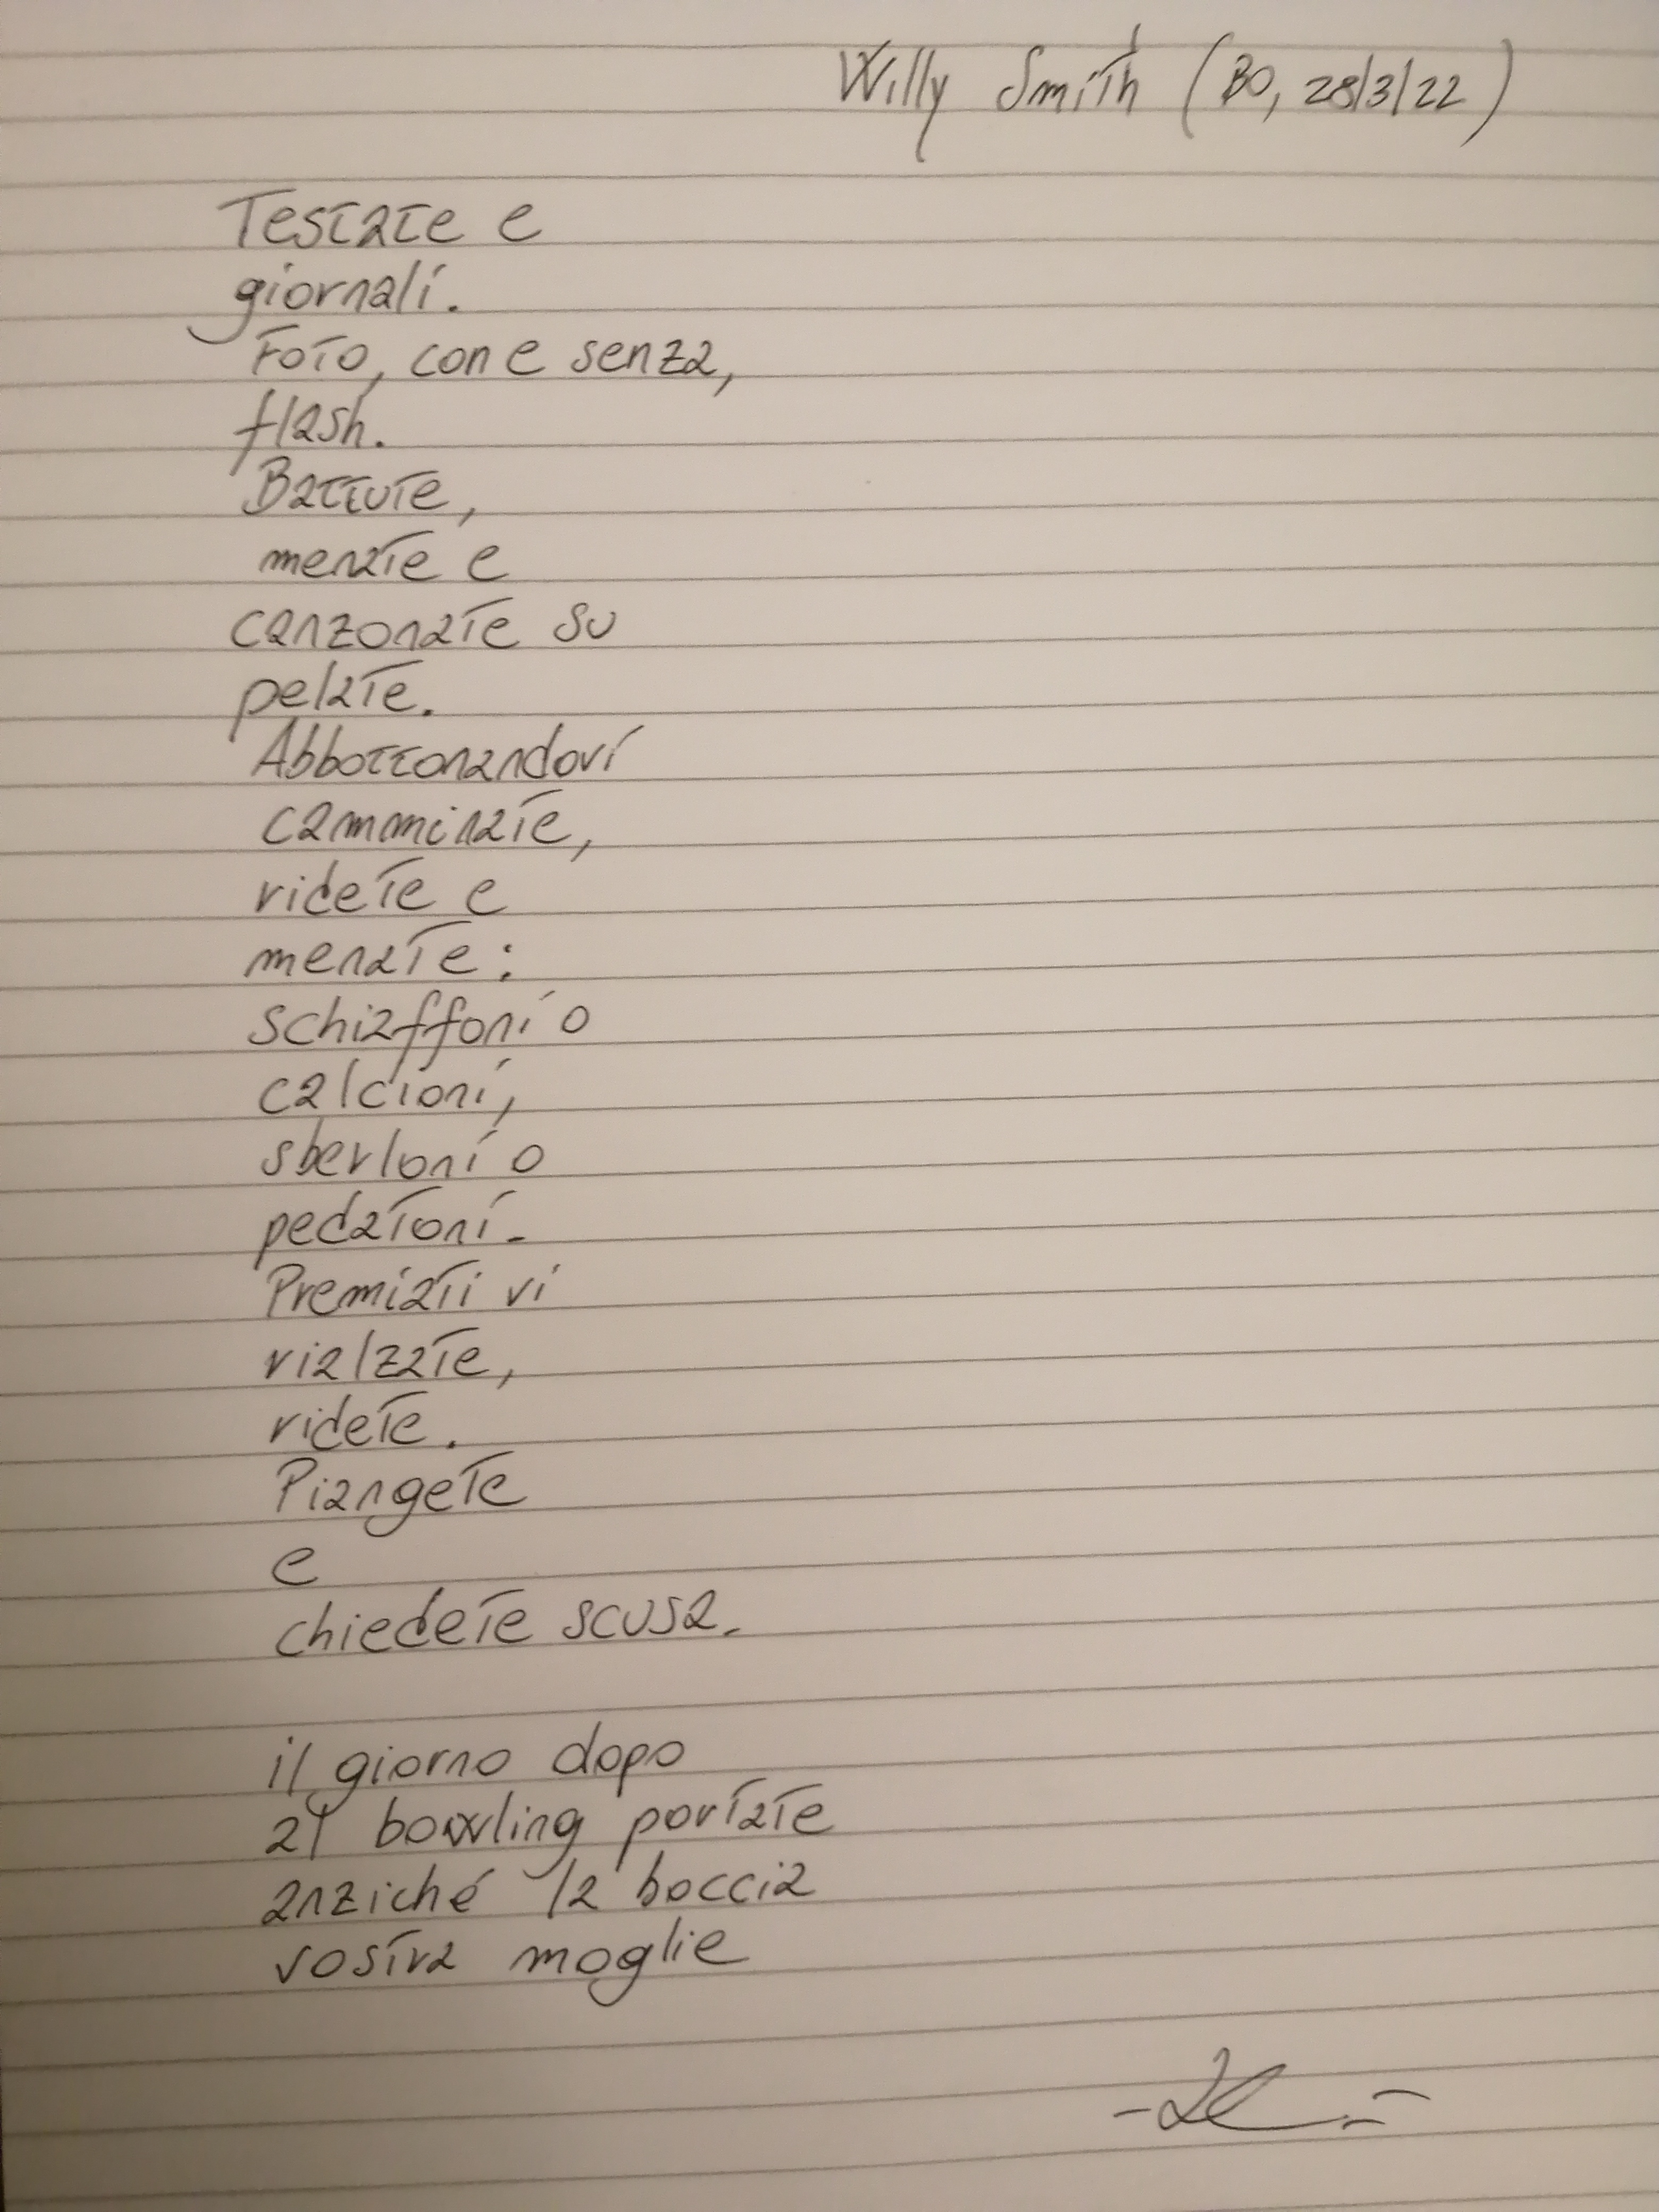 Willy Smith (BO, 28/3/22)
Testate e
giornali.
Foto, con e senza,
flash.
Battute,
menate e
canzonate su
pelate.
Abbottonandovi
camminate,
ridete e
menate:
schiaffoni o
calcioni,
sberloni o
pedatoni.
Premiati vi
rialzate,
ridete.
Piangete
e
chiedete scusa.
il giorno dopo
al bowling portate
anziché la boccia
vostra moglie